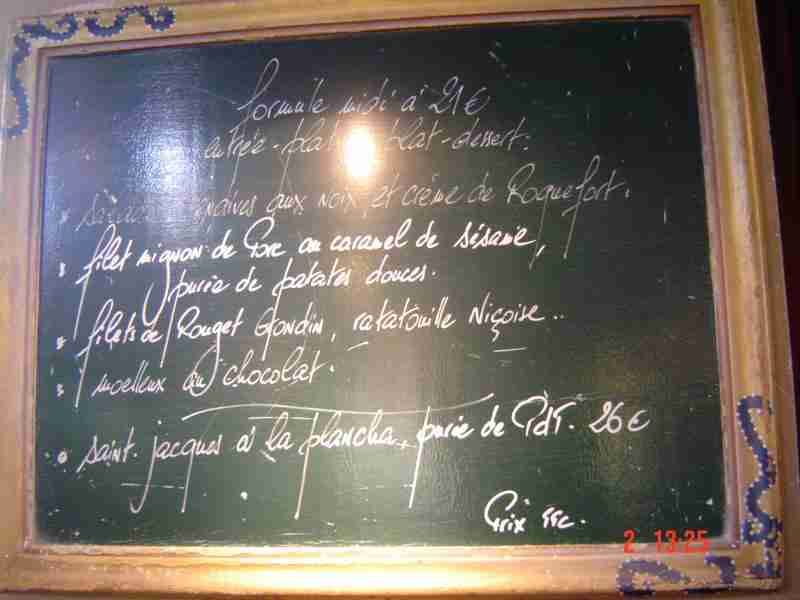 formule midi à 21€
entrée-plat plat-dessert:
* salade d'endives aux noix et crème de Roquefort.
* filet mignon de Porc au caramel de sésame,
purée de patates douces.
* filets de Rouget Grondin, ratatouille Niçoise..
* moelleux au chocolat.
• saint. jacques à la plancha, purée de PdT. 26€
Prix TTC.
2 13:25